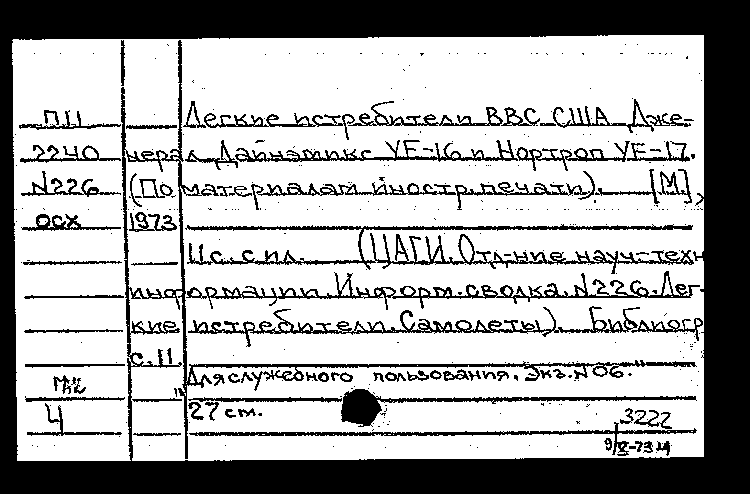 П11 Легкие истребители ВВС США Дже-
2240 нерал Дайнэмикс YF-16 и Нортроп YF-17.
N226 (По материалам иностр. печати). [М.],
осх 1973
11 с. с ил. (ЦАГИ. Отд-ние науч-техн
информации. Информ. сводка. N226. Лег-
кие истребители. Самолеты). Библиогр
с. 11.
"Для служебного пользования. Экз. N 06."
Ч 27 см.
3222